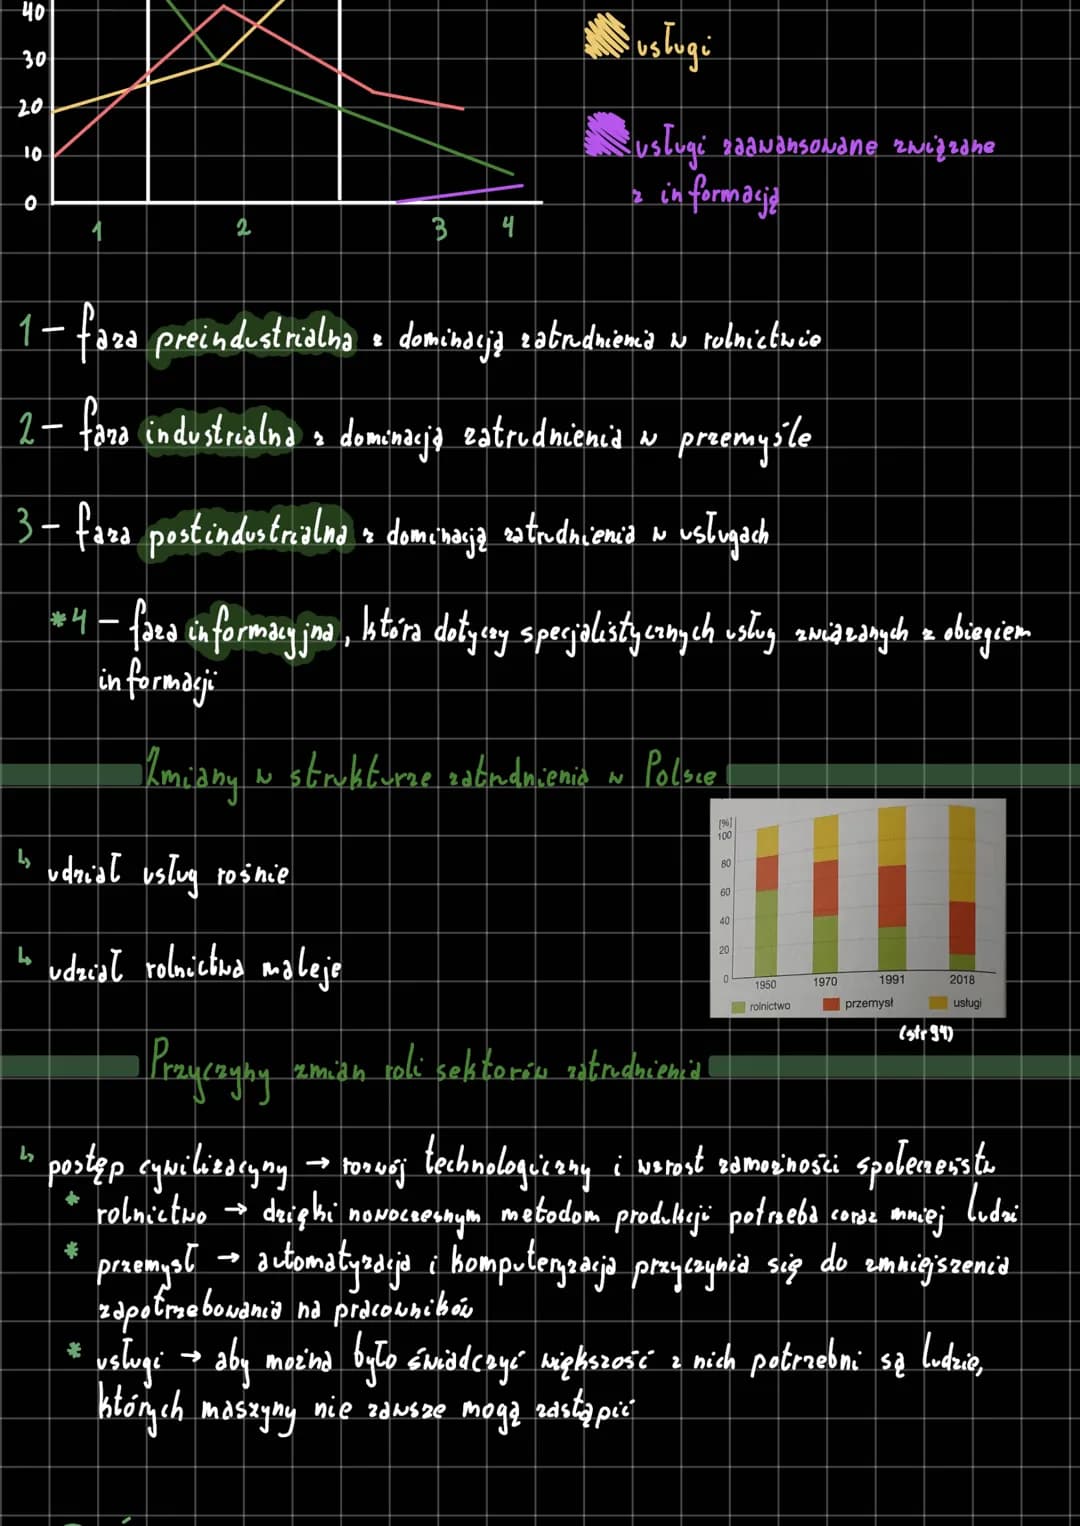 40
30
20
10
0
1 2 3 4
usługi
usługi zaawansowane związane
z informacją
1 – faza preindustrialna z dominacją zatrudnienia w rolnictwie
2 – faza industrialna z dominacją zatrudnienia w przemyśle
3 – faza postindustrialna z dominacją zatrudnienia w usługach
*4 – faza informacyjna, która dotyczy specjalistycznych usług związanych z obiegiem
informacji
Zmiany w strukturze zatrudnienia w Polsce
↳ udział usług rośnie
↳ udział rolnictwa maleje
[%]
100
80
60
40
20
0
1950 1970 1991 2018
rolnictwo przemysł usługi
(str 94)
Przyczyny zmian roli sektorów zatrudnienia
↳ postęp cywilizacyjny → rozwój technologiczny i wzrost zamożności społeczeństw
* rolnictwo → dzięki nowoczesnym metodom produkcji potrzeba coraz mniej ludzi
* przemysł → automatyzacja i komputeryzacja przyczynia się do zmniejszenia
zapotrzebowania na pracowników
* usługi → aby można było świadczyć większość z nich potrzebni są ludzie,
których maszyny nie zawsze mogą zastąpić